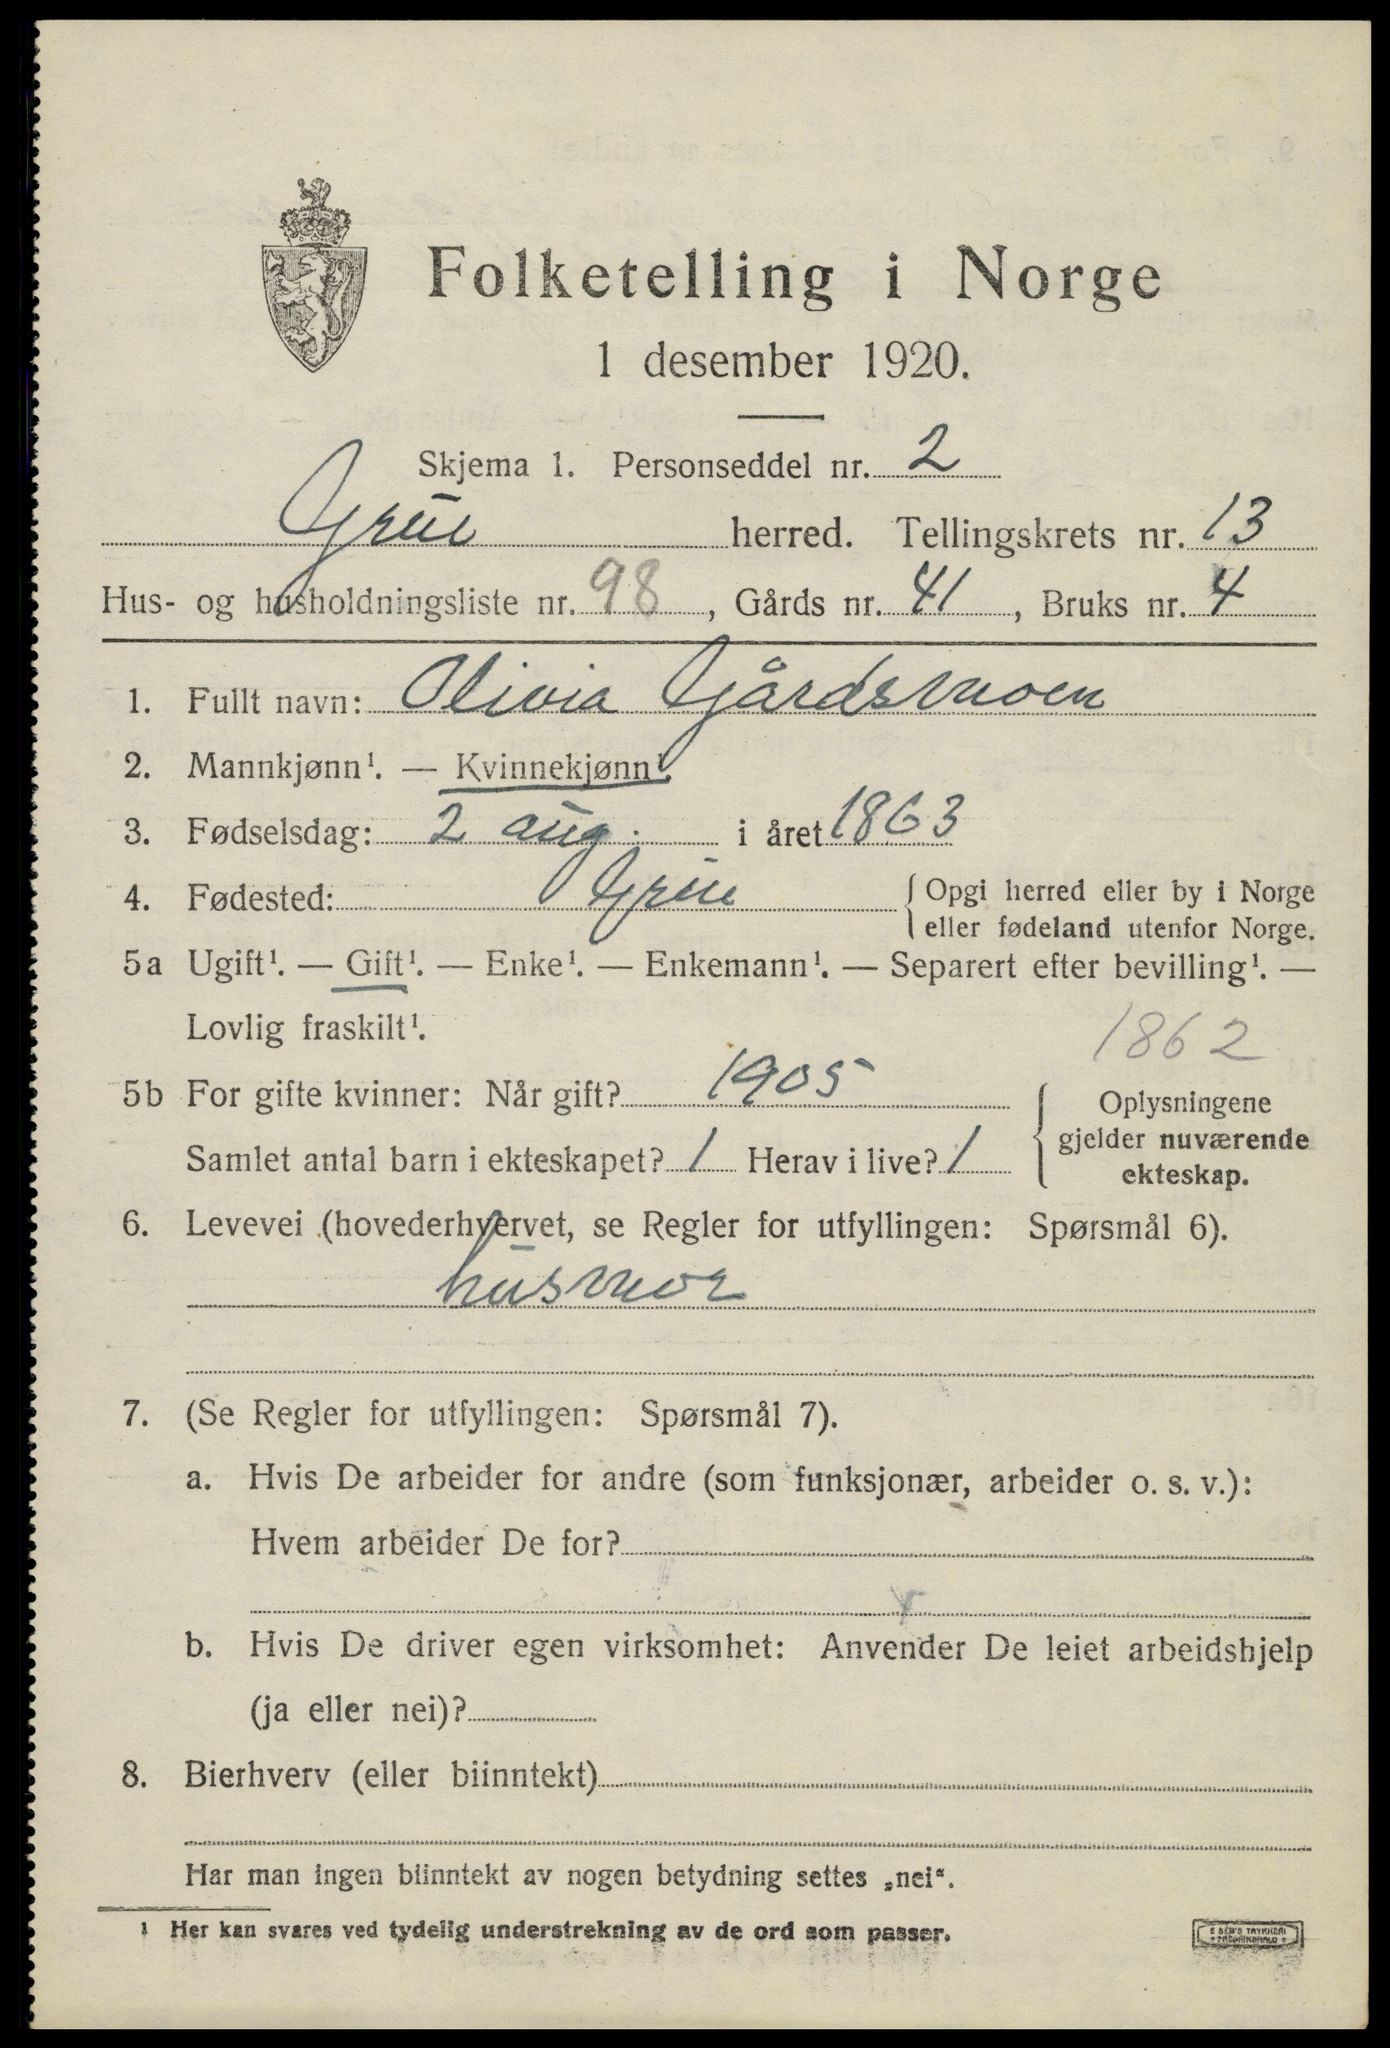 Folketelling i Norge
1 desember 1920.
Skjema 1. Personseddel nr. 2
Grue herred. Tellingskrets nr. 13
Hus- og husholdningsliste nr. 98, Gårds nr. 41, Bruks nr. 4
1. Fullt navn: Olivia Gårdsmoen
2. Mannkjønn¹. — Kvinnekjønn¹.
3. Fødselsdag: 2 aug. i året 1863
4. Fødested: Grue { Opgi herred eller by i Norge
eller fødeland utenfor Norge.
5a Ugift¹. — Gift¹. — Enke¹. — Enkemann¹. — Separert efter bevilling¹. —
Lovlig fraskilt¹.
1862
5b For gifte kvinner: Når gift? 1905
Samlet antal barn i ekteskapet? 1 Herav i live? 1
{ Oplysningene
gjelder nuværende
ekteskap.
6. Levevei (hovederhvervet, se Regler for utfyllingen: Spørsmål 6).
husmor
7. (Se Regler for utfyllingen: Spørsmål 7).
a. Hvis De arbeider for andre (som funksjonær, arbeider o. s. v.):
Hvem arbeider De for?
b. Hvis De driver egen virksomhet: Anvender De leiet arbeidshjelp
(ja eller nei)?
8. Bierhverv (eller biinntekt)
Har man ingen biinntekt av nogen betydning settes „nei“.
¹ Her kan svares ved tydelig understrekning av de ord som passer.
E SEM'S TRYKKERI
FREDRIKSHALD